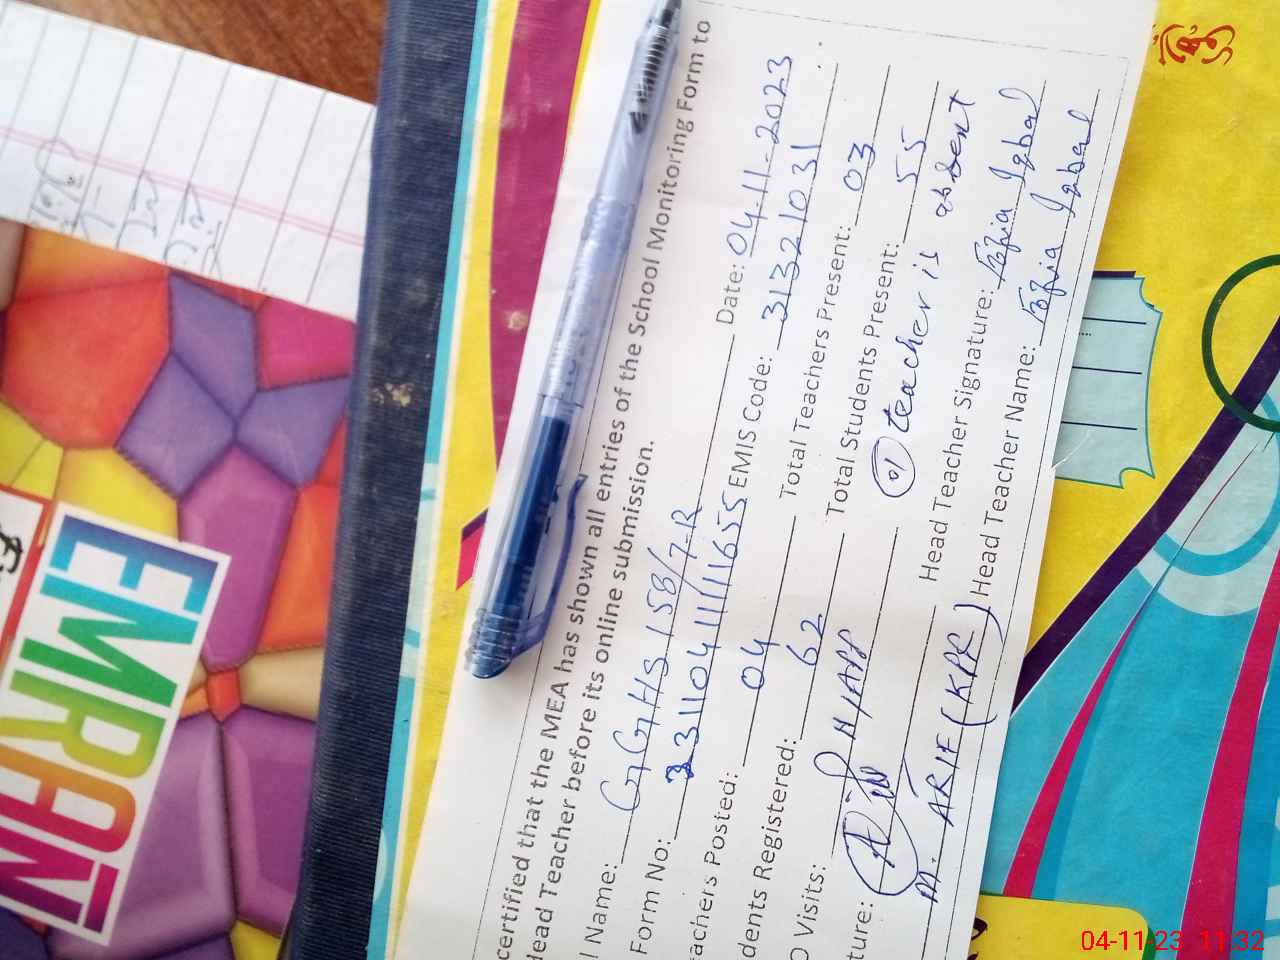 certified that the MEA has shown all entries of the School Monitoring Form to
Head Teacher before its online submission.
l Name: GGHS 158/7-R Date: 04-11-2023
Form No: EMIS Code: 31321031
achers Posted: 04 Total Teachers Present: 03
dents Registered: 62 Total Students Present: 55
O Visits: 01 teacher is absent
ture: Head Teacher Signature: Fozia Iqbal
M. ARIF (KPE) Head Teacher Name: Fozia Iqbal
EMRAN
04-11-23 11:32